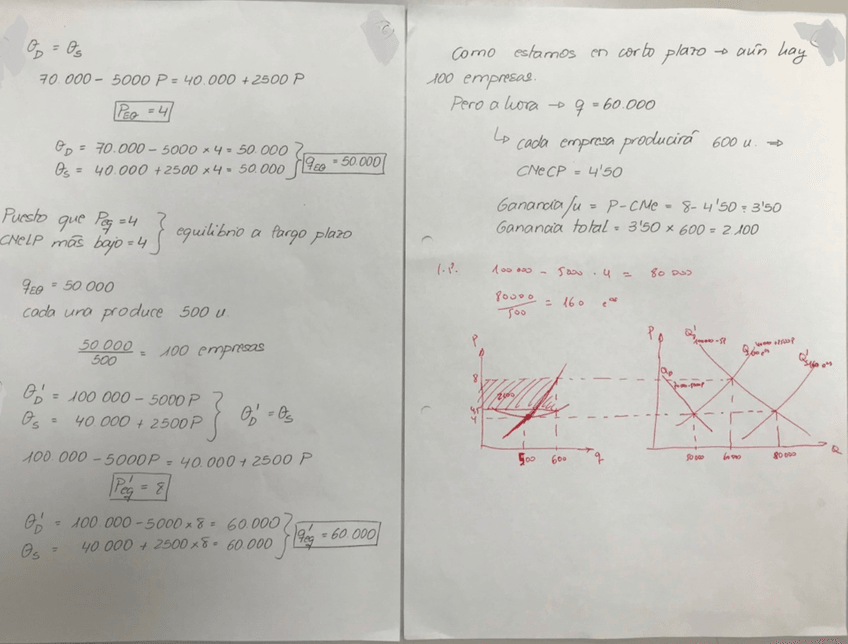 θD = θS
70.000 - 5000 P = 40.000 + 2500 P
PEQ = 4
θD = 70.000 - 5000 × 4 = 50.000
θS = 40.000 + 2500 × 4 = 50.000
qEQ = 50.000
Puesto que Peq = 4
CMeLP más bajo = 4
equilibrio a largo plazo
qEQ = 50.000
cada una produce 500 u.
50 000 / 500 = 100 empresas
θD' = 100 000 - 5000P
θS = 40 000 + 2500P
θD' = θS
100.000 - 5000P = 40.000 + 2500 P
P'eq = 8
θD' = 100 000 - 5000 × 8 = 60.000
θS = 40 000 + 2500 × 8 = 60.000
q'eq = 60.000
Como estamos en corto plazo → aún hay
100 empresas.
Pero ahora → q = 60.000
↳ cada empresa producirá 600 u. ⇒
CMeCP = 4'50
Ganancia/u = P - CMe = 8 - 4'50 = 3'50
Ganancia total = 3'50 × 600 = 2.100
100 000 - 5000 · 4 = 80 000
80000 / 500 = 160
P
8
2100
4
500
600
q
P
80000
Q